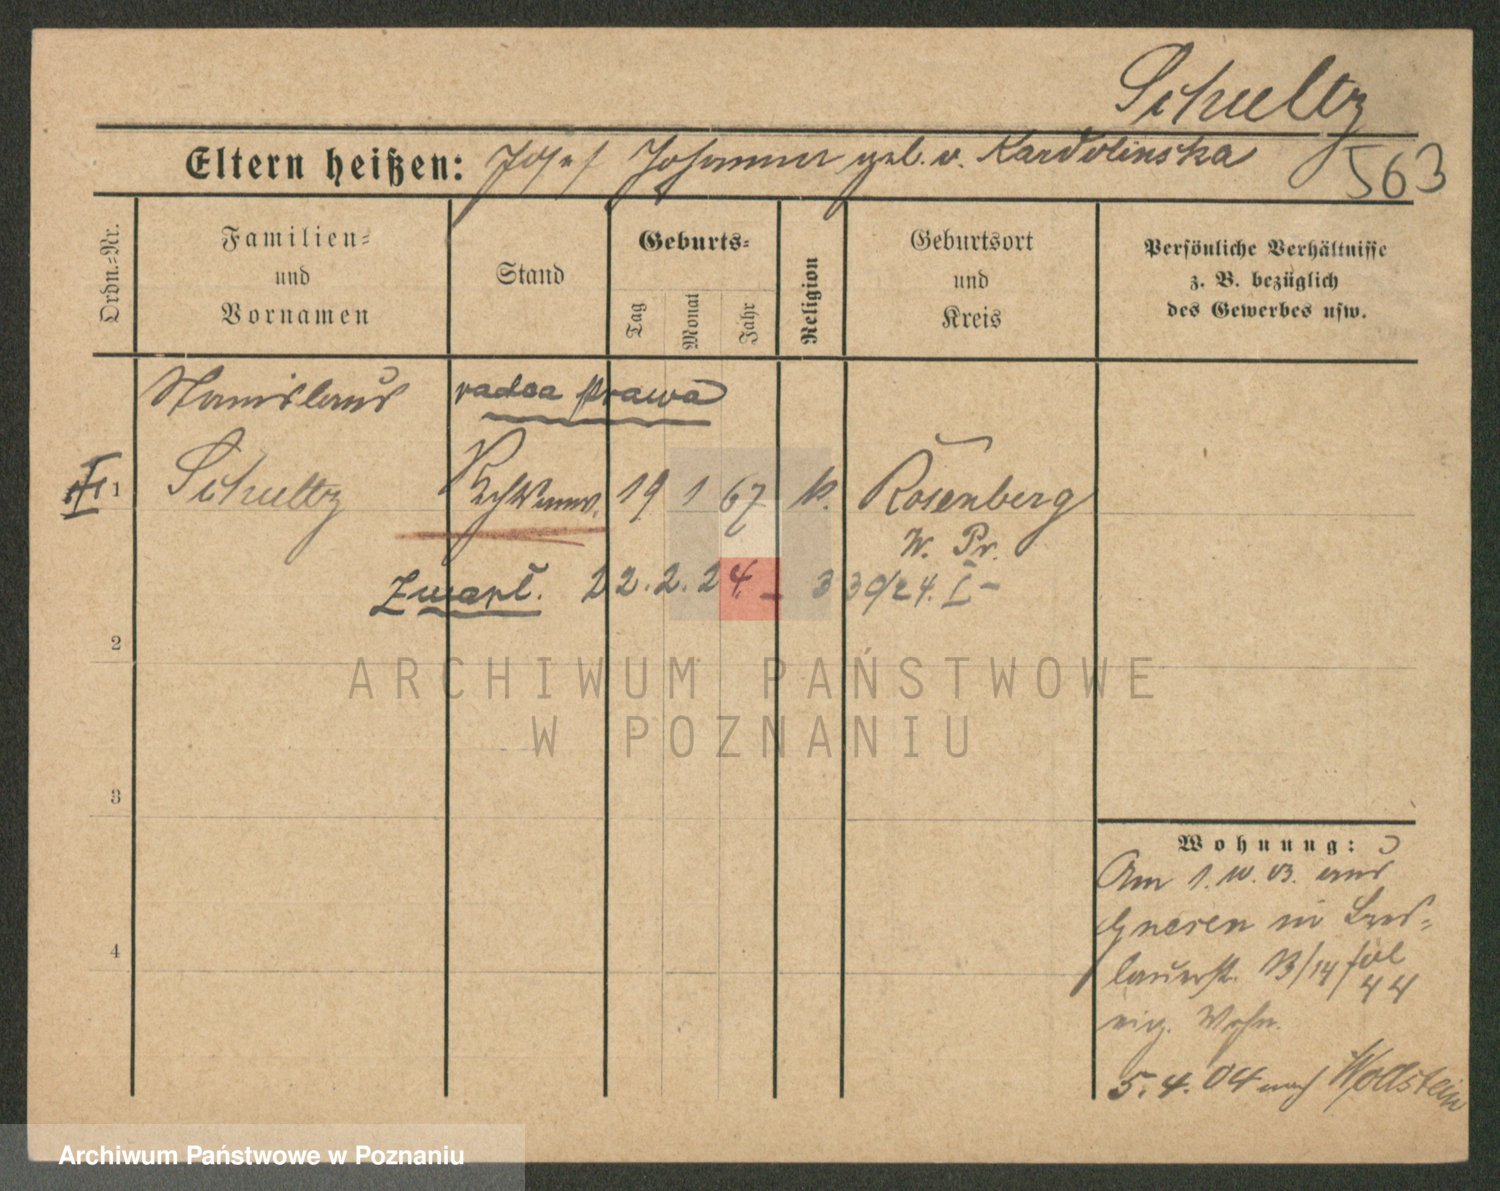 Schultz
Eltern heißen: Josef Johanna geb. v. Kardolinska
563
Ordn.-Nr.
Familien- und Vornamen
Stand
Geburts-
Tag
Monat
Jahr
Religion
Geburtsort und Kreis
Persönliche Verhältnisse
z. B. bezüglich
des Gewerbes usw.
Stanislaus
radca prawa
1
Schultz
19 1 67 k. Rosenberg
W. Pr.
Zmarł. 22.2.24. - 330/24. I -
2
ARCHIWUM PAŃSTWOWE
W POZNANIU
3
4
Wohnung:
Am 1.10.03. aus
Gnesen in Bres-
lauerstr. 13/14
44
eig. Wohn.
5.4.04 nach Wollstein
Archiwum Państwowe w Poznaniu